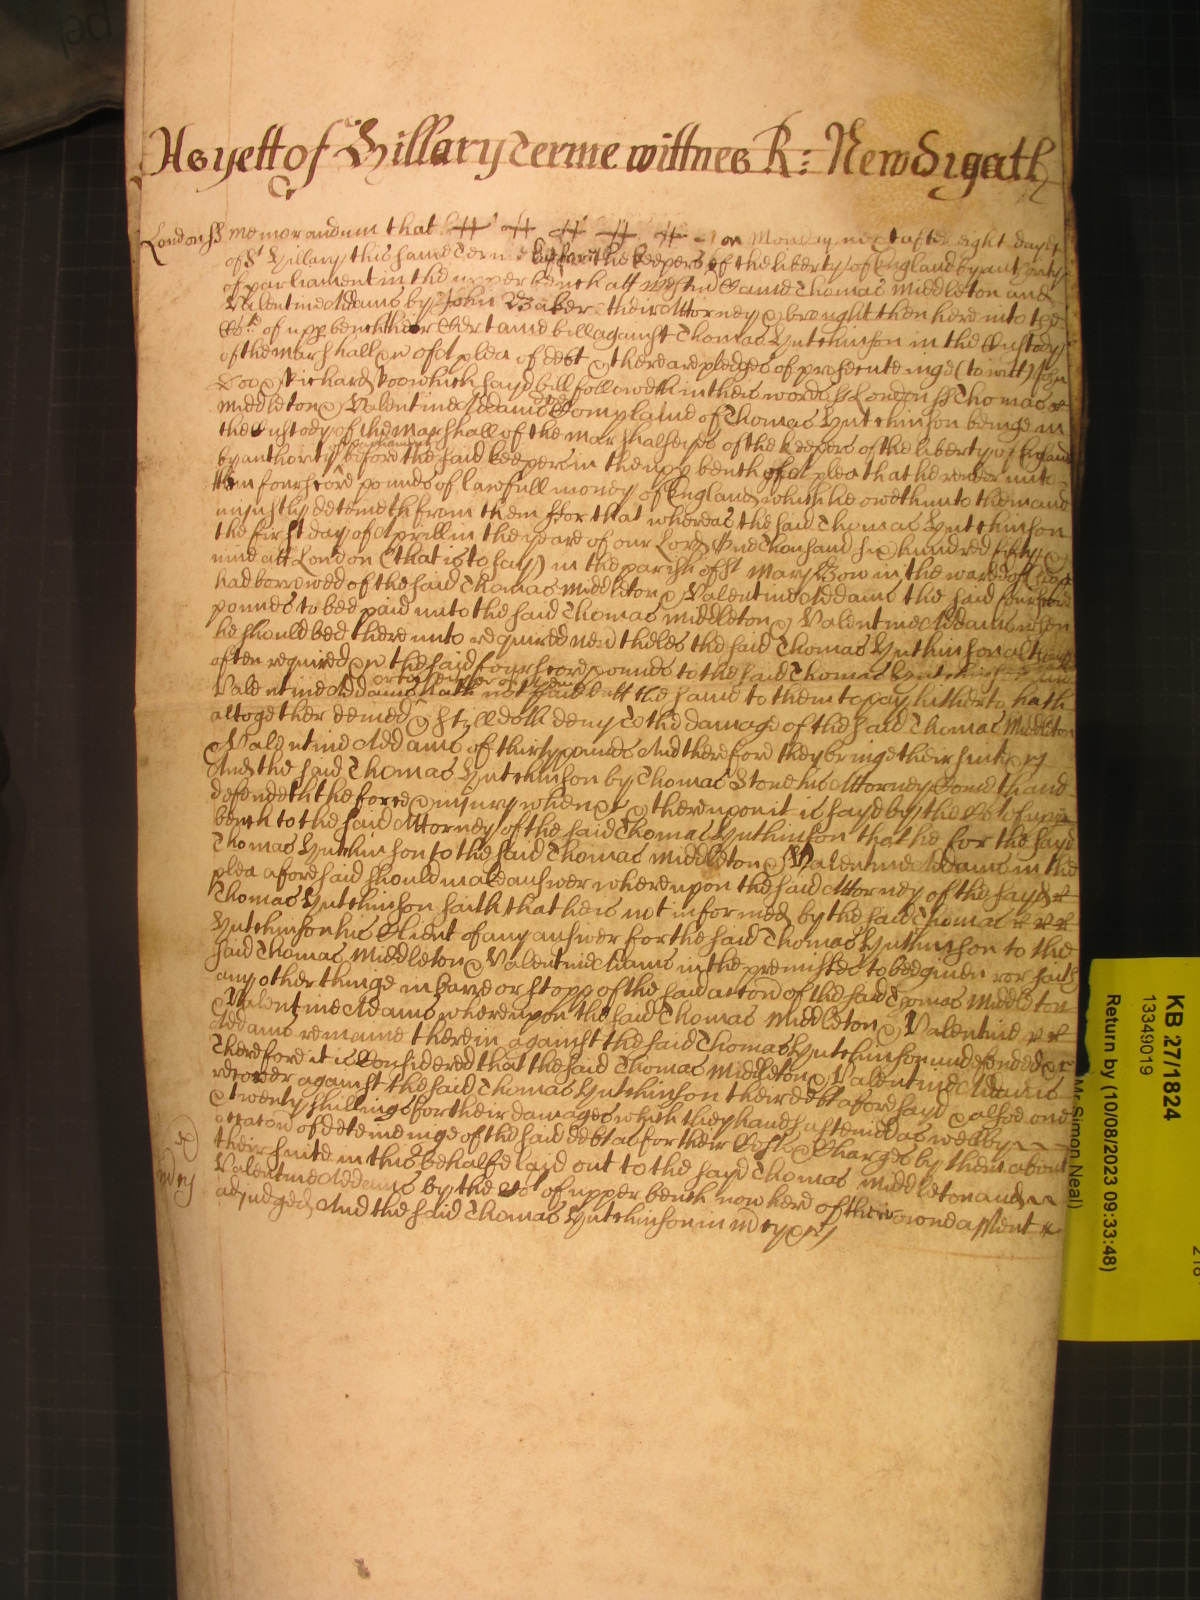 As yett of Hillary Terme wittnes R: Newdigath
London ss memorandum that on Monday next after eight dayes
of St Hillary this same Terme before the keepers of the liberty of England by authority
of parliament in the upper bench att Westm Came Thomas Middleton and
Valentine Addams by John Baker their Attorney & brought then here into the
Cort of upp bench their Certaine bill against Thomas Hutchinson in the Custody
of the marshall &c of a plea of debt & there are pledges of prosecuteinge (to witt) John
Doo & Richard Roo which sayd bill followeth in theis words ss London ss Thomas
Middleton & Valentine Addams Complaine of Thomas Hutchinson beinge in
the Custody of the marshall of the marshalseyes of the keepers of the liberty of England
by authority of parliament before the said keepers in the upp bench of a plea that he render unto
them fourscore pounds of lawfull money of England which he oweth unto them and
uniustly deteineth from them ffor that whereas the said Thomas Hutchinson
the first day of Aprill in the yeare of our Lord One Thousand six hundred fifty &
nine att London (that is to say) in the parish of St Mary Bow in the ward of Cheap
had borrowed of the said Thomas Middleton & Valentine Addams the said fourscore
pounds to bee paid unto the said Thomas Middleton & Valentine Addams when
he should bee there unto required neu theles the said Thomas Hutchinson although
often required &c the said fourscore pounds to the said Thomas
Valentine Addams or to either of them hath not paid butt the same to them to pay hitherto hath
altogether denied & still doth deny To the damage of the said Thomas Middleton
& Valentine Addams of thirty pounds And therefore they bringe their suite &c
And the said Thomas Hutchinson by Thomas Stone his Attorney Cometh and
defendeth the force & iniury when &c & thereupon it is sayd by the Cort of upp
bench to the said Attorney of the said Thomas Huthinson that he for the sayd
Thomas Hutchinson to the said Thomas Middleton & Valentine Addams in the
plea aforesaid should make answer whereupon the said Attorney of the sayd
Thomas Hutchinson saith that he is not informed by the said Thomas
Hutchinson his Client of any answer for the said Thomas Huthinson to the
said Thomas Middleton & Valentine Adams in the premisses to bee given nor saith
any other thinge in barre or stopp of the said accon of the said Thomas Middleton
& Valentine Adams whereupon the said Thomas Middleton & Valentine
Addams remaine therein against the said Thomas Hutchinson undefended &c
Therefore it is Considered that the said Thomas Middleton & Valentine Adams
recover against the said Thomas Hutchinson their debt aforesayd & alsoe one
& twenty shillings for their damages which they have susteined as well by
occacon of deteineinge of the said debt as for their Costs & Charges by them about
their suite in this behalfe laid out to the sayd Thomas Middleton and
Valentine Addams by the Cort of upper bench now here of their owne assent
adiudged And the said Thomas Hutchinson in mcy &c
mcy
KB 27/1824
13349019
Return by (10/08/2023 09:33:48)
Mr Simon Neal)